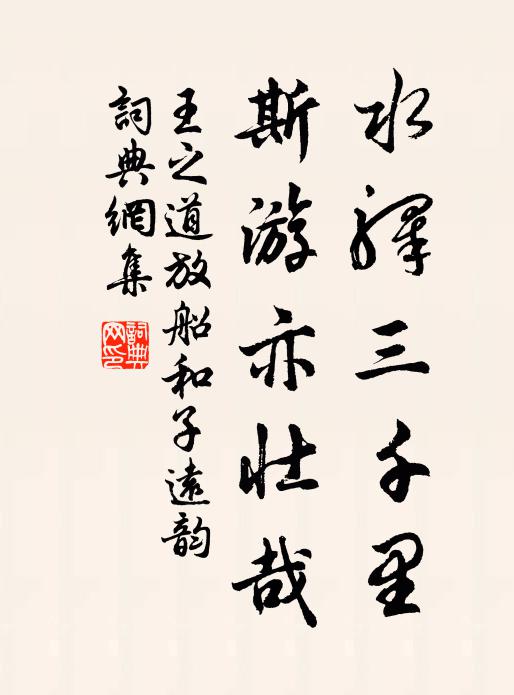 水驛三千里
斯游亦壯哉
王之道放船和子遠韵
詞典網集
詞典
网印